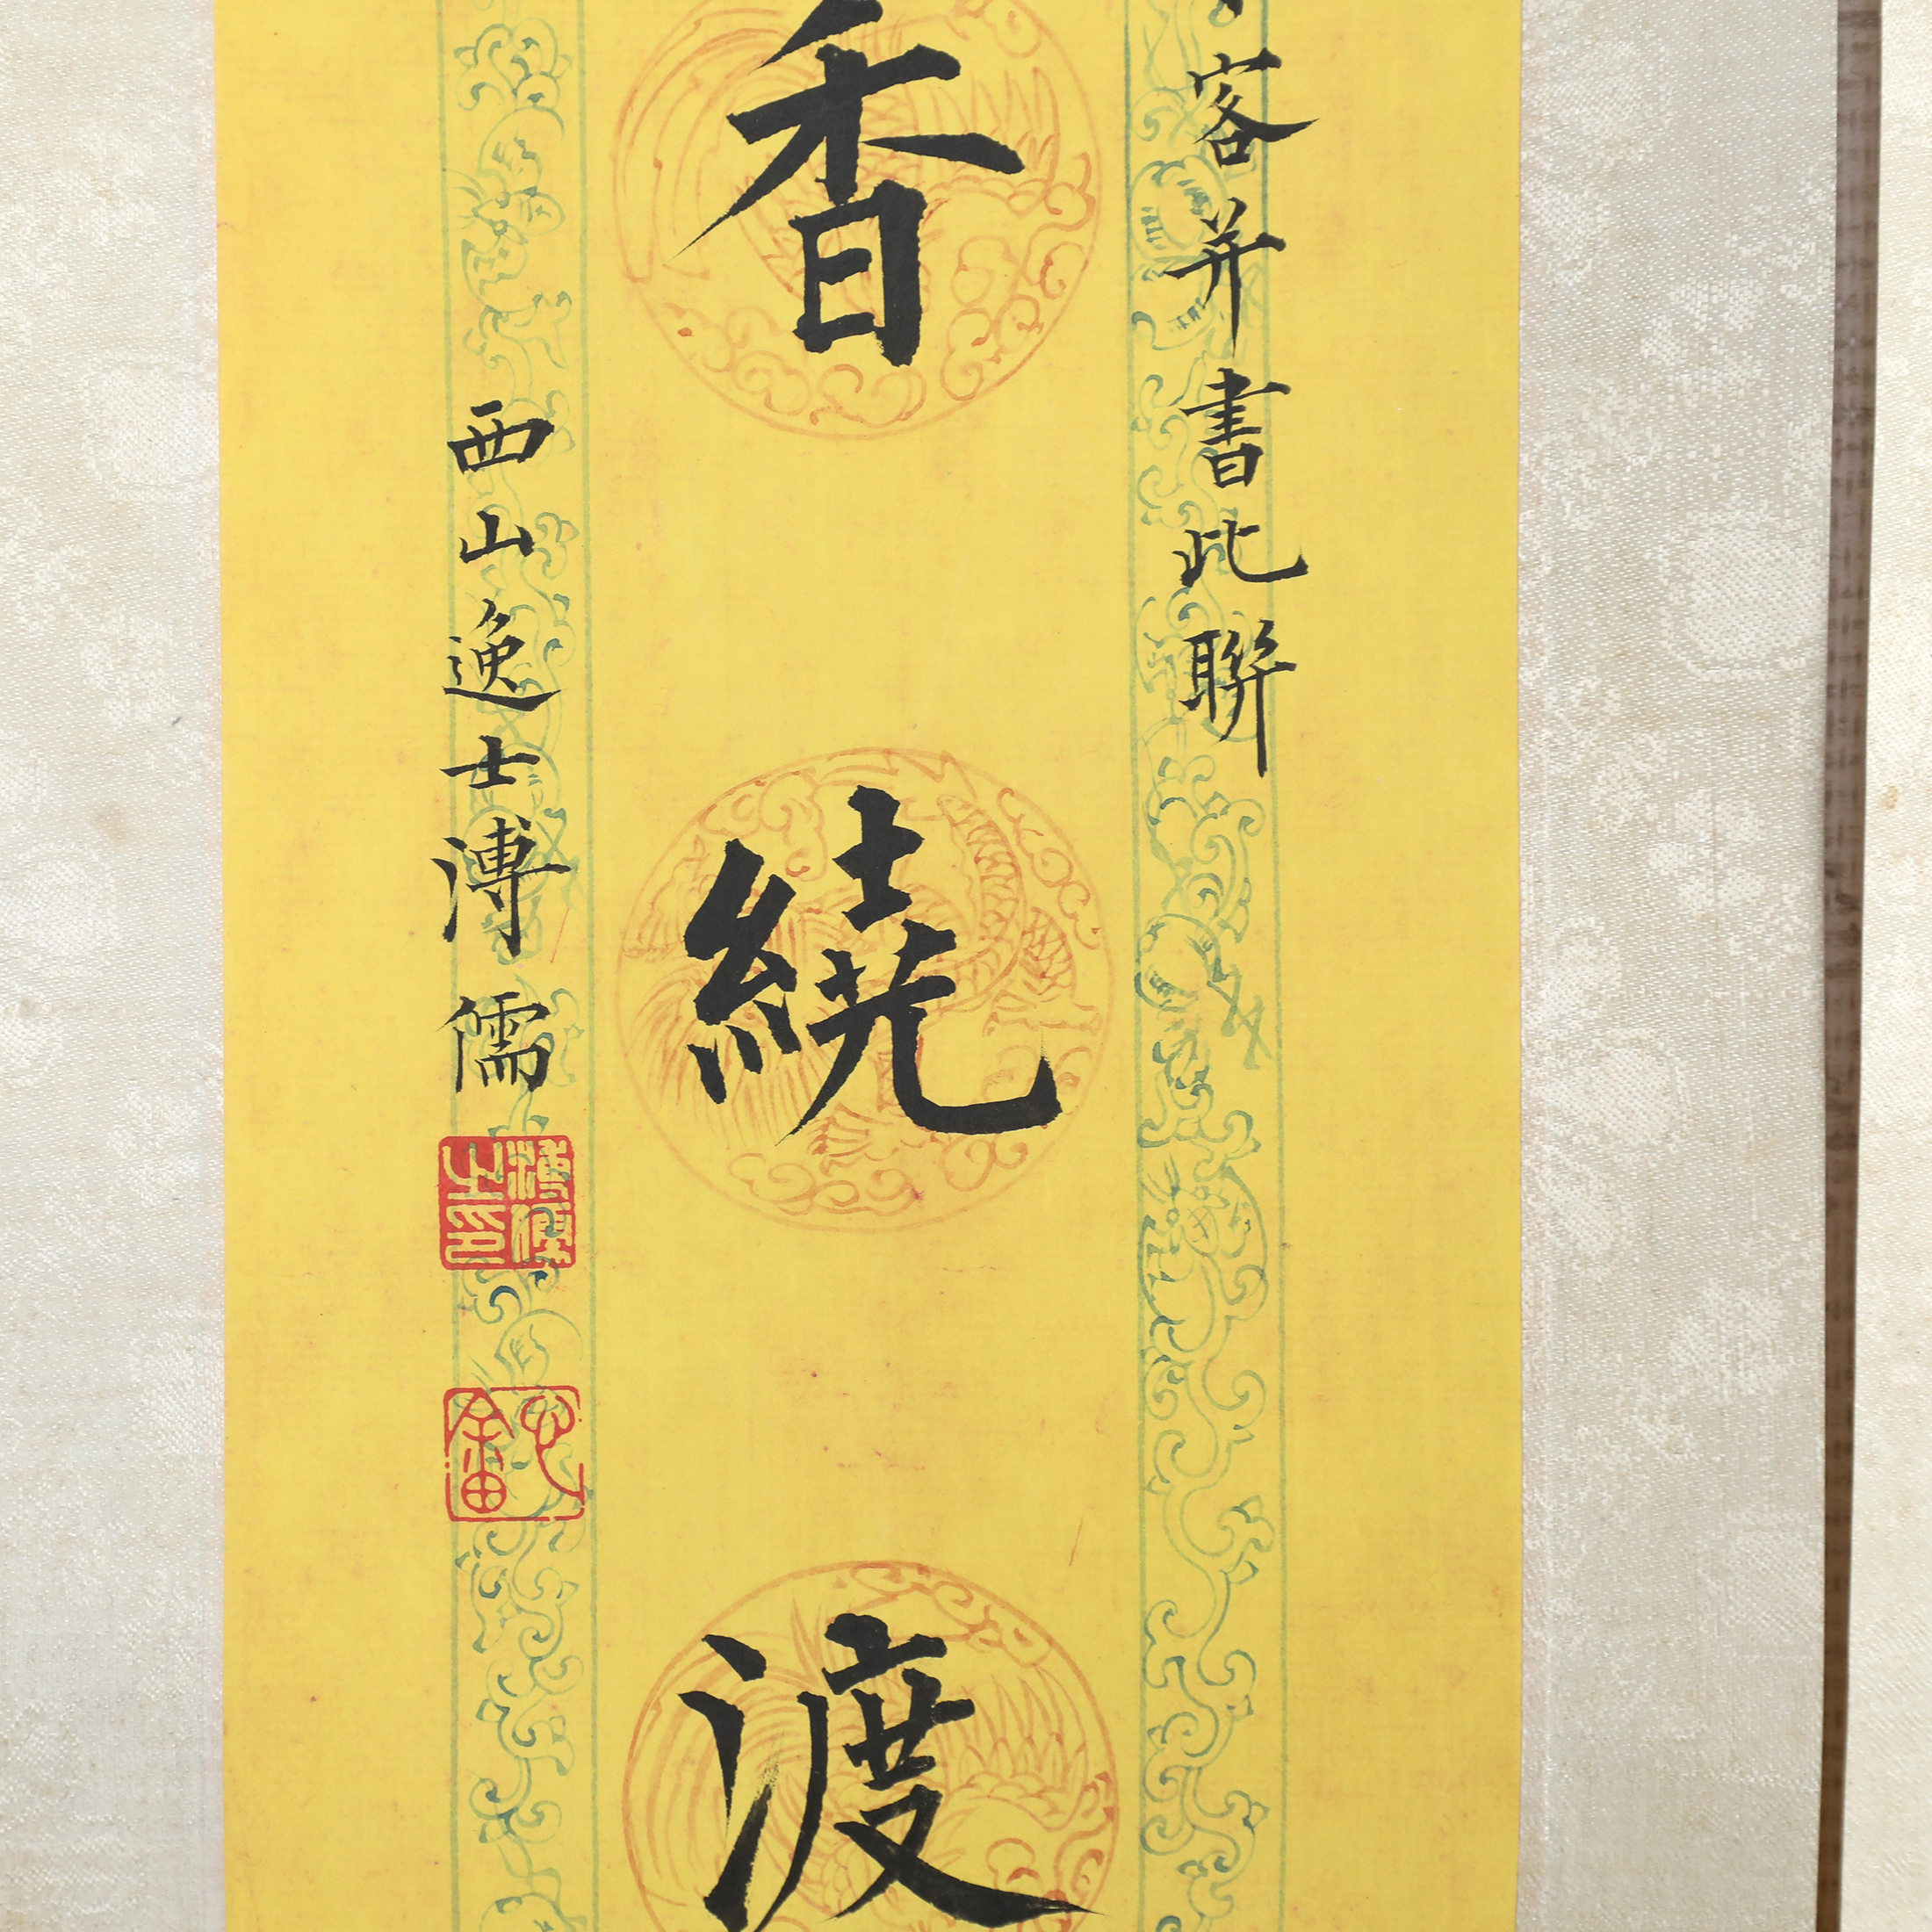 客并書此聯
香繞渡
西山逸士溥儒
溥儒之印